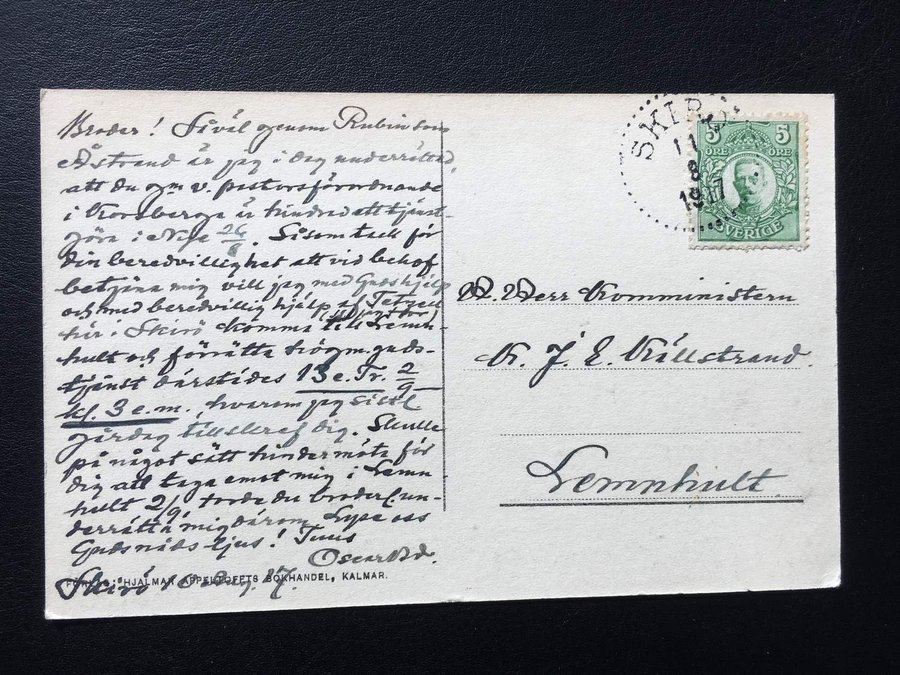 Broder! Såväl genom Rubin som
Åstrand är jag i dag underrättad,
att du gm v. pastorsförordnande
i Korsberga är hindrad att tjänst-
göra i Näfve 26/8. Såsom tack för
din beredvillighet att vid behof
betjäna mig vill jag med Guds hjälp
och med beredvillig hjälp af
här i Skirö komma till Lemn-
hult och förrätta högm.guds-
tjänst därstädes 13 e. Tr. 2/9
kl. 3 e.m., hvarom jag sistl.
gårdag tillskref dig. Skulle
på något sätt hinder möta för
dig att taga emot mig i Lemn
hult 2/9, torde du broderl. un-
derrätta mig därom. Lyse oss
Guds nåds ljus! Tuus
Oscar
Skirö 10 Aug. 17.
FÖRLAG: HJALMAR APPELTOFFTS BOKHANDEL, KALMAR.
SKIRÖ
11
8
1917
5 5
ÖRE ÖRE
SVERIGE
Herr Komministern
K. J. E. Källstrand
Lemnhult